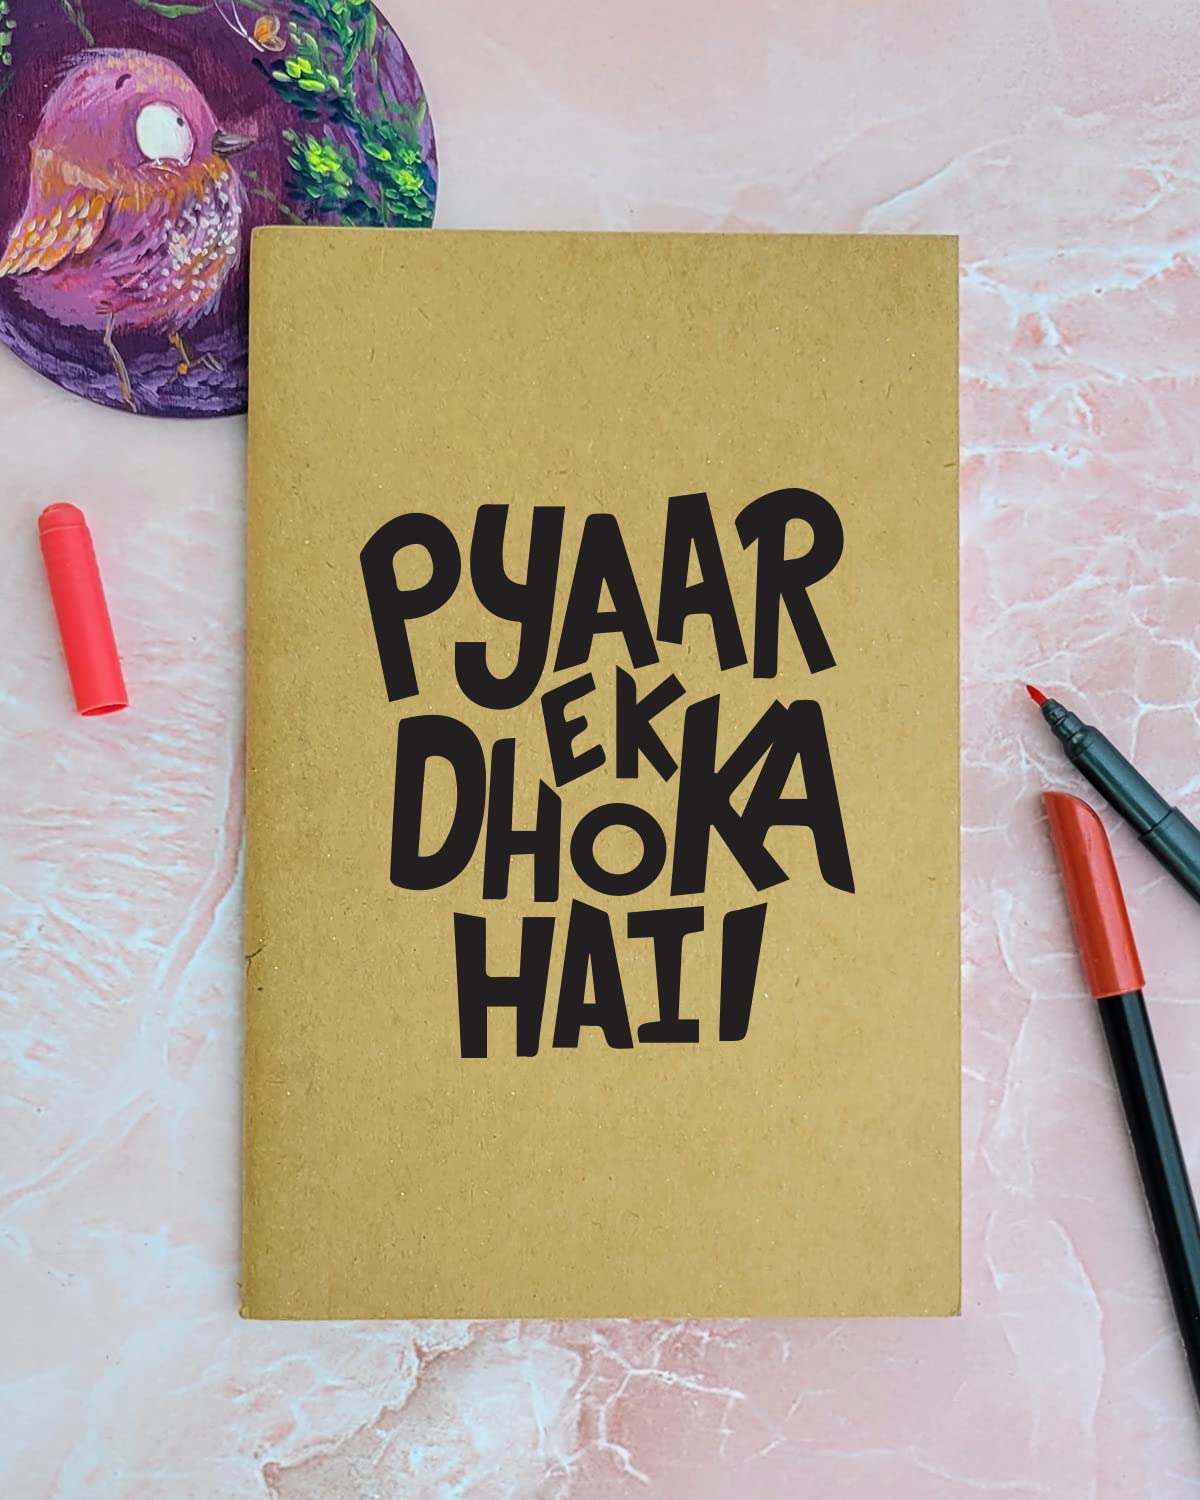 PYAAR
EK
DHOKA
HAII